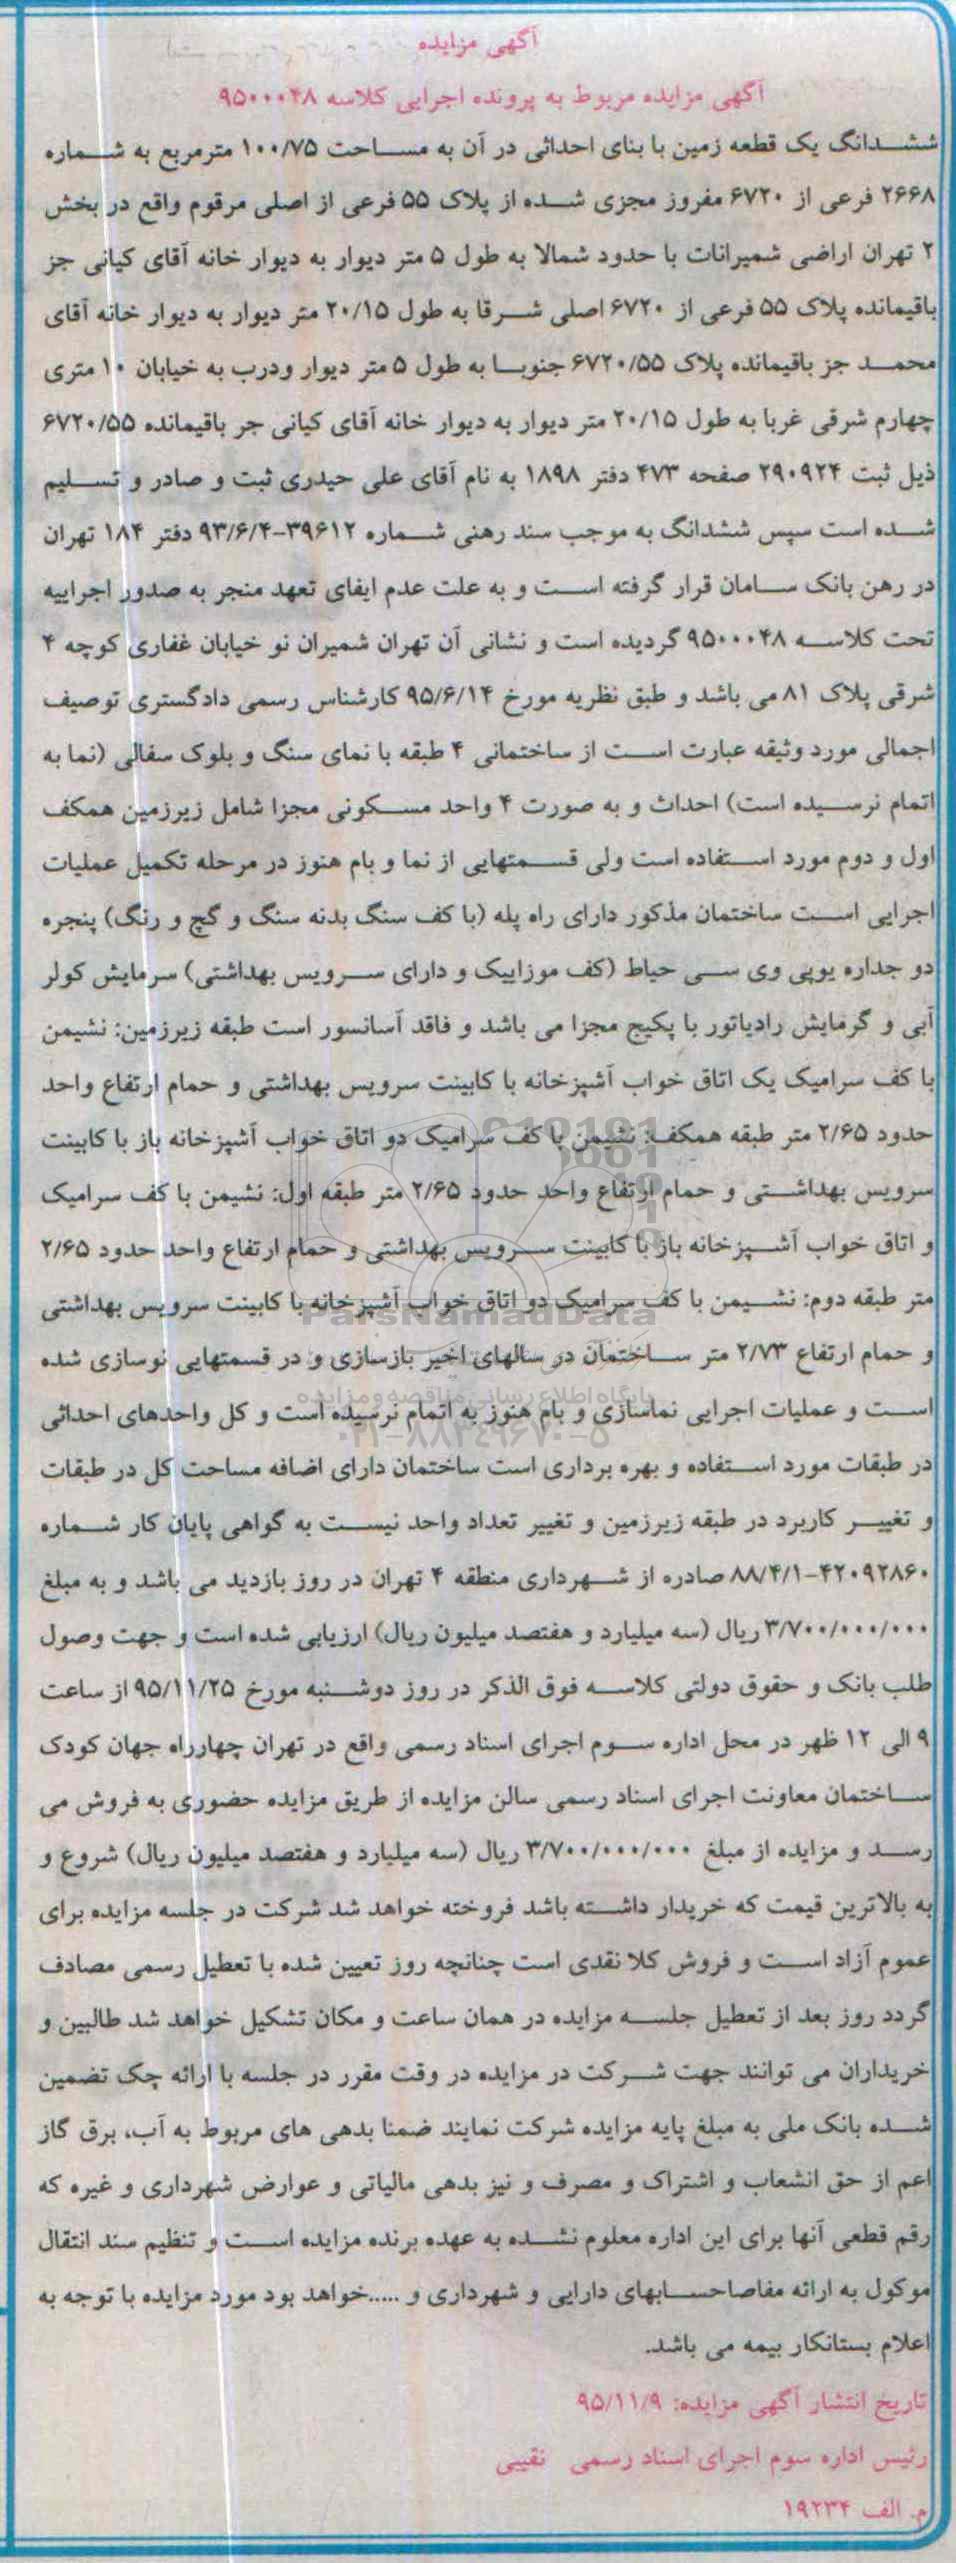 آگهی مزایده
آگهی مزایده مربوط به پرونده اجرایی کلاسه ۹۵۰۰۰۴۸
ششدانگ یک قطعه زمین با بنای احداثی در آن به مساحت ۱۰۰/۷۵ مترمربع به شماره
۲۶۶۸ فرعی از ۶۷۲۰ مفروز مجزی شده از پلاک ۵۵ فرعی از اصلی مرقوم واقع در بخش
۲ تهران اراضی شمیرانات با حدود شمالا به طول ۵ متر دیوار به دیوار خانه آقای کیانی جز
باقیمانده پلاک ۵۵ فرعی از ۶۷۲۰ اصلی شرقا به طول ۲۰/۱۵ متر دیوار به دیوار خانه آقای
محمد جز باقیمانده پلاک ۶۷۲۰/۵۵ جنوبا به طول ۵ متر دیوار ودرب به خیابان ۱۰ متری
چهارم شرقی غربا به طول ۲۰/۱۵ متر دیوار به دیوار خانه آقای کیانی جر باقیمانده ۶۷۲۰/۵۵
ذیل ثبت ۲۹۰۹۲۴ صفحه ۴۷۳ دفتر ۱۸۹۸ به نام آقای علی حیدری ثبت و صادر و تسلیم
شده است سپس ششدانگ به موجب سند رهنی شماره ۳۹۶۱۲-۹۳/۶/۴ دفتر ۱۸۴ تهران
در رهن بانک سامان قرار گرفته است و به علت عدم ایفای تعهد منجر به صدور اجراییه
تحت کلاسه ۹۵۰۰۰۴۸ گردیده است و نشانی آن تهران شمیران نو خیابان غفاری کوچه ۴
شرقی پلاک ۸۱ می باشد و طبق نظریه مورخ ۹۵/۶/۱۴ کارشناس رسمی دادگستری توصیف
اجمالی مورد وثیقه عبارت است از ساختمانی ۴ طبقه با نمای سنگ و بلوک سفالی (نما به
اتمام نرسیده است) احداث و به صورت ۴ واحد مسکونی مجزا شامل زیرزمین همکف
اول و دوم مورد استفاده است ولی قسمتهایی از نما و بام هنوز در مرحله تکمیل عملیات
اجرایی است ساختمان مذکور دارای راه پله (با کف سنگ بدنه سنگ و گچ و رنگ) پنجره
دو جداره یوپی وی سی حیاط (کف موزاییک و دارای سرویس بهداشتی) سرمایش کولر
آبی و گرمایش رادیاتور با پکیج مجزا می باشد و فاقد آسانسور است طبقه زیرزمین: نشیمن
با کف سرامیک یک اتاق خواب آشپزخانه با کابینت سرویس بهداشتی و حمام ارتفاع واحد
حدود ۲/۶۵ متر طبقه همکف: نشیمن با کف سرامیک دو اتاق خواب آشپزخانه باز با کابینت
سرویس بهداشتی و حمام ارتفاع واحد حدود ۲/۶۵ متر طبقه اول: نشیمن با کف سرامیک
و اتاق خواب آشپزخانه باز با کابینت سرویس بهداشتی و حمام ارتفاع واحد حدود ۲/۶۵
متر طبقه دوم: نشیمن با کف سرامیک دو اتاق خواب آشپزخانه با کابینت سرویس بهداشتی
ParsNamadData
و حمام ارتفاع ۲/۷۳ متر ساختمان در سالهای اخیر بازسازی و در قسمتهایی نوسازی شده
پایگاه اطلاع رسانی مناقصه و مزایده
است و عملیات اجرایی نماسازی و بام هنوز به اتمام نرسیده است و کل واحدهای احداثی
۰۲۱-۸۸۳۴۹۶۷۰-۵
در طبقات مورد استفاده و بهره برداری است ساختمان دارای اضافه مساحت کل در طبقات
و تغییر کاربرد در طبقه زیرزمین و تغییر تعداد واحد نیست به گواهی پایان کار شماره
۴۲۰۹۲۸۶۰-۸۸/۴/۱ صادره از شهرداری منطقه ۴ تهران در روز بازدید می باشد و به مبلغ
۳/۷۰۰/۰۰۰/۰۰۰ ریال (سه میلیارد و هفتصد میلیون ریال) ارزیابی شده است و جهت وصول
طلب بانک و حقوق دولتی کلاسه فوق الذکر در روز دوشنبه مورخ ۹۵/۱۱/۲۵ از ساعت
۹ الی ۱۲ ظهر در محل اداره سوم اجرای اسناد رسمی واقع در تهران چهارراه جهان کودک
ساختمان معاونت اجرای اسناد رسمی سالن مزایده از طریق مزایده حضوری به فروش می
رسد و مزایده از مبلغ ۳/۷۰۰/۰۰۰/۰۰۰ ریال (سه میلیارد و هفتصد میلیون ریال) شروع و
به بالاترین قیمت که خریدار داشته باشد فروخته خواهد شد شرکت در جلسه مزایده برای
عموم آزاد است و فروش کلا نقدی است چنانچه روز تعیین شده با تعطیل رسمی مصادف
گردد روز بعد از تعطیل جلسه مزایده در همان ساعت و مکان تشکیل خواهد شد طالبین و
خریداران می توانند جهت شرکت در مزایده در وقت مقرر در جلسه با ارائه چک تضمین
شده بانک ملی به مبلغ پایه مزایده شرکت نمایند ضمنا بدهی های مربوط به آب، برق گاز
اعم از حق انشعاب و اشتراک و مصرف و نیز بدهی مالیاتی و عوارض شهرداری و غیره که
رقم قطعی آنها برای این اداره معلوم نشده به عهده برنده مزایده است و تنظیم سند انتقال
موکول به ارائه مفاصاحسابهای دارایی و شهرداری و .....خواهد بود مورد مزایده با توجه به
اعلام بستانکار بیمه می باشد.
تاریخ انتشار آگهی مزایده: ۹۵/۱۱/۹
رئیس اداره سوم اجرای اسناد رسمی نقیبی
م. الف ۱۹۲۳۴